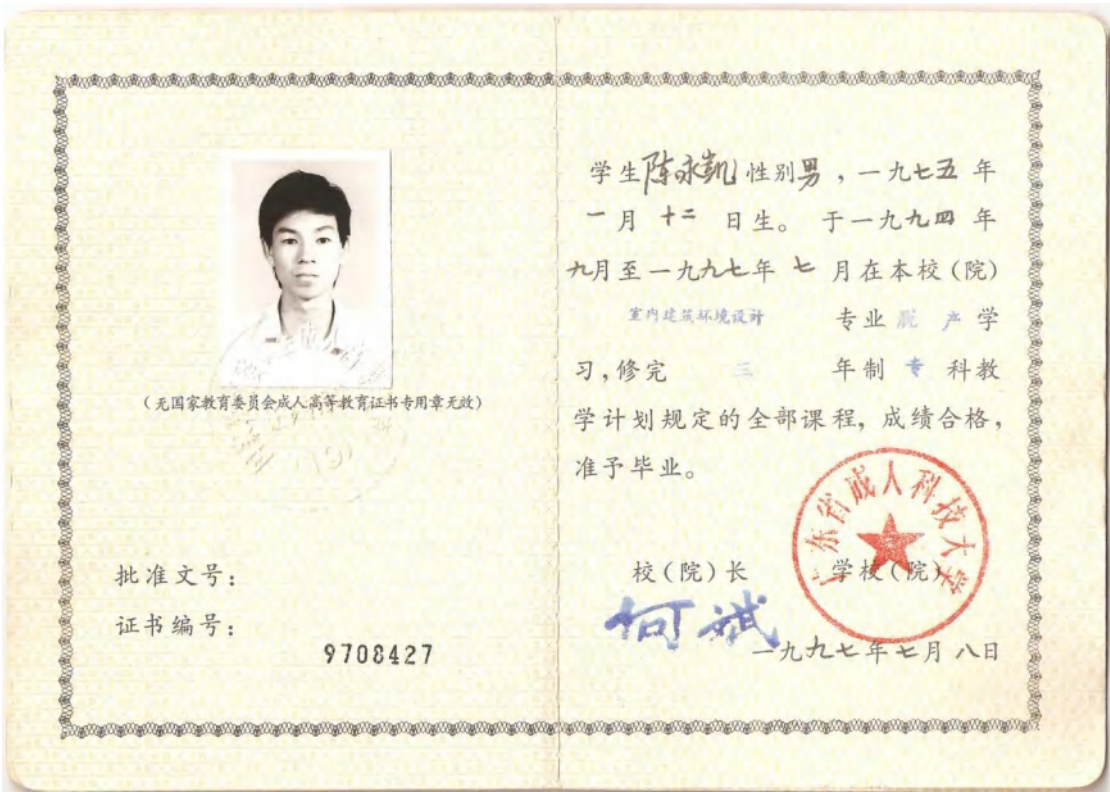 (无国家教育委员会成人高等教育证书专用章无效)
批准文号：
证书编号：
9708427
学生陈永凯性别男，一九七五年
一月十二日生。于一九九四年
九月至一九九七年七月在本校(院)
室内建筑环境设计 专业脱产学
习，修完三年制专科教
学计划规定的全部课程，成绩合格，
准予毕业。
广东省成人科技大学
校(院)长 学校(院)
何斌
一九九七年七月八日